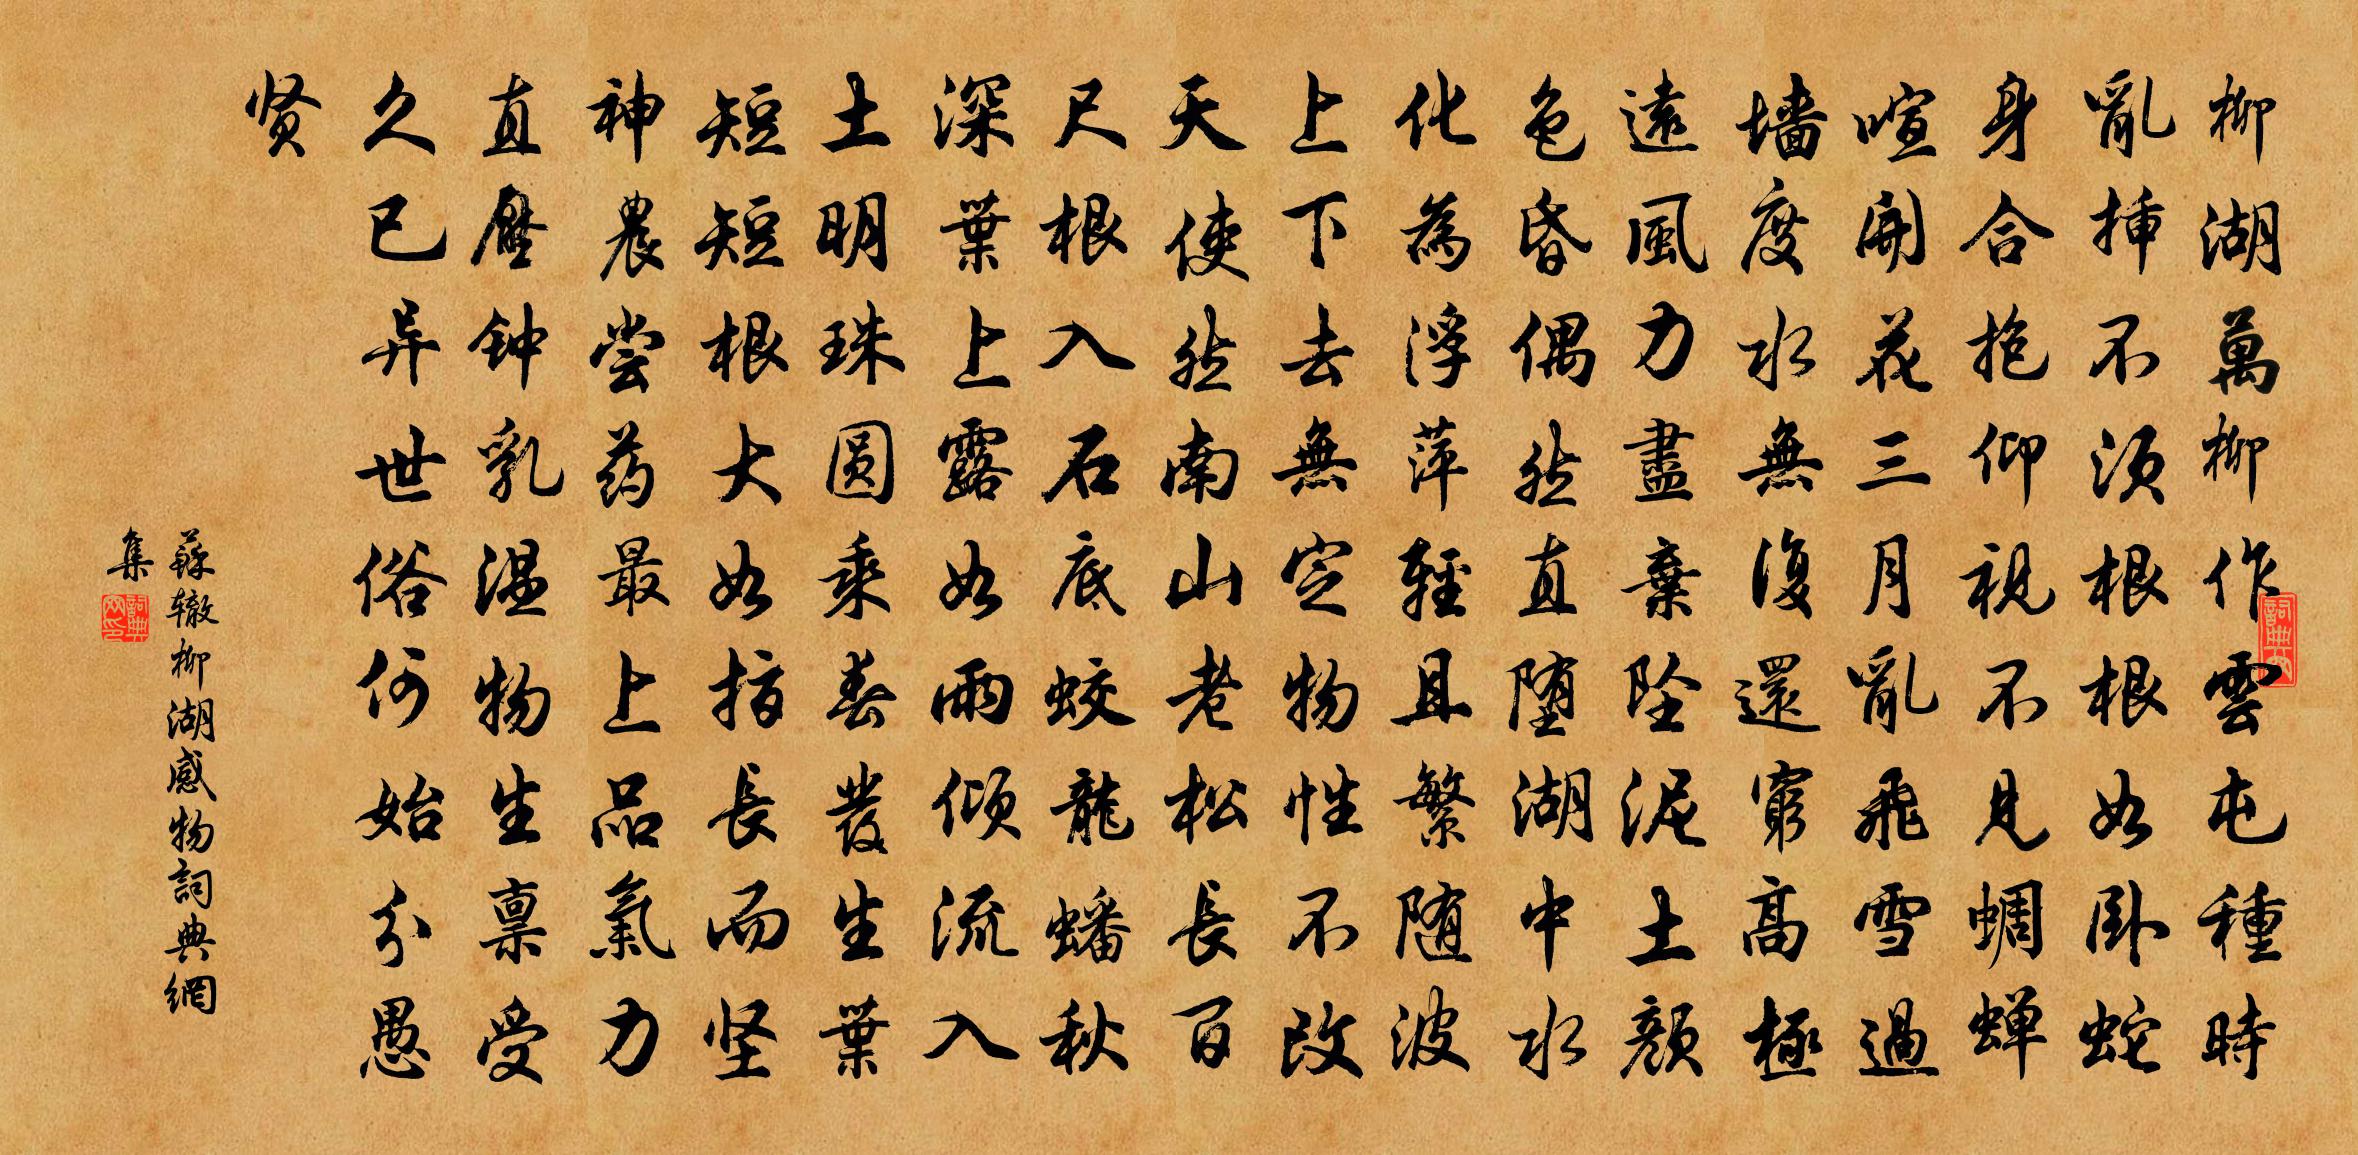 柳湖萬柳作雲屯種時
亂揷不須根根如臥蛇
身合抱仰視不見蜩蟬
喧開花三月亂飛雪過
墻度水無復還窮高極
遠風力盡棄墜泥土顏
色昏偶然直墮湖中水
化為浮萍輕且繁隨波
上下去無定物性不改
天使然南山老松長百
尺根入石底蛟龍蟠秋
深葉上露如雨傾流入
土明珠圓乘春發生葉
短短根大如指長而堅
神農嘗药最上品氣力
直壓钟乳温物生稟受
久已异世俗何始分愚
贤
蘇辙柳湖感物詞典網
集
詞典網
詞典網印